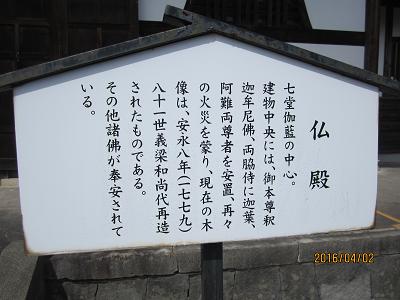 仏殿
七堂伽藍の中心。
建物中央には、御本尊釈
迦牟尼佛、両脇侍に迦葉、
阿難両尊者を安置、再々
の火災を蒙り、現在の木
像は、安永八年(一七七九)
八十一世義梁和尚代再造
されたものである。
その他諸佛が奉安されて
いる。
2016/04/02